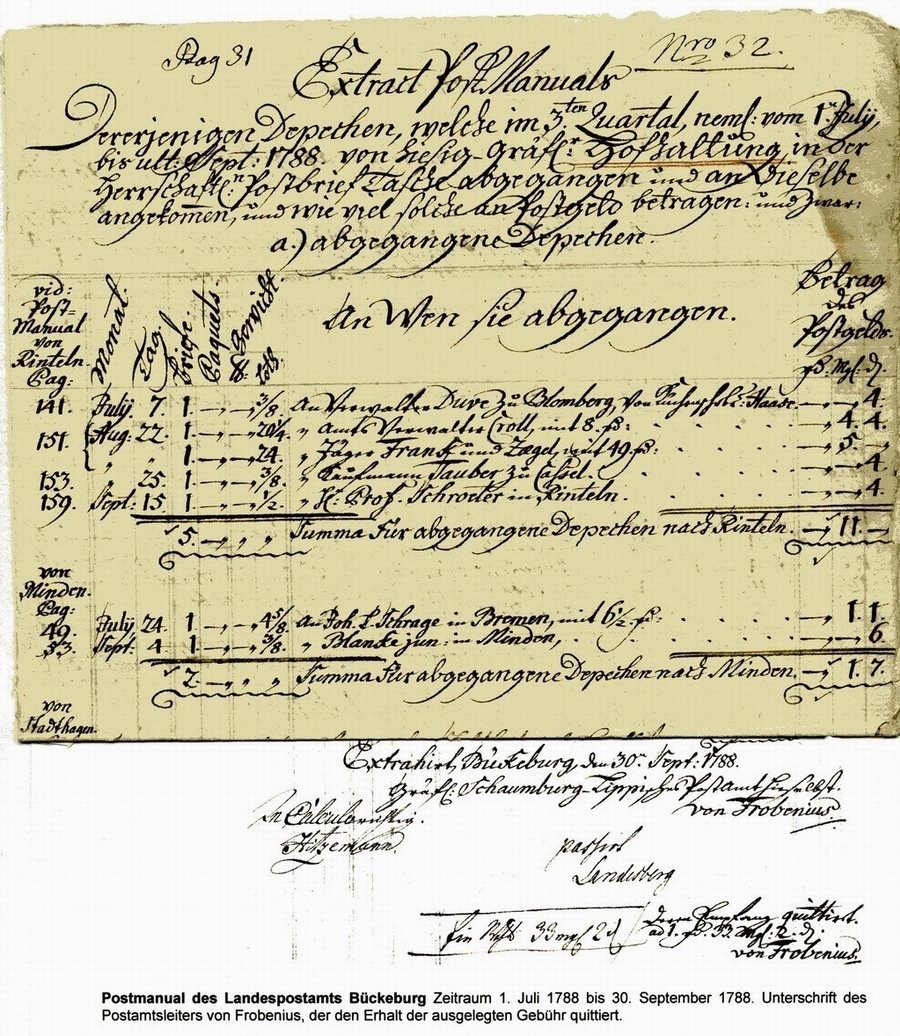 Pag 31
Nro 32.
Extract Post Manuals
Dererjenigen Depechen, welche im 3ten Quartal, neml: vom 1. July,
bis ult. Sept: 1788. von hiesig-Gräfl.r Hofhaltung in der
Herrschaftl:n Postbrief Tasche abgegangen und an dieselbe
angekom̄en, und wie viel solche an Postgeld betragen: und zwar:
a.) abgegangene Depechen.
vid: Post-Manual von Rinteln. Pag: Monat. Tag. Briefe. Paquets. Gewicht. Loth. An Wen sie abgegangen. Betrag des Postgelds. Mgl: d.
141. July. 7. 1. -„ -„ 3/8. An Verwalter Duve zu Blomberg, von -„ -„ 4.
151. Aug: 22. 1. -„ -„ 20¼. „ Amts Verwalter Croll, mit 8. -„ 4. 4.
„ „ 1. -„ -„ 24. „ Jäger Franck und Zægel, mit 49. -„ 5. „
153. „ 25. 1. -„ -„ 3/8. „ Kaufmann Tauber zu Cassel. -„ -„ 4.
159. Sept: 15 1. -„ -„ ½. „ H: Prof. Schroeter in Rinteln. -„ -„ 4.
5. -„ „ „ Summa Für abgegangene Depechen nach Rinteln. -„ 11. -
von
Minden.
Pag:
49. July 24. 1 -„ -„ 4 5/8. An Joh. L. Schrage in Bremen, mit 6½ -„ 1. 1.
53. Sept. 4 1 -„ -„ 3/8. „ Blanke jun: in Minden, -„ -„ 6
2. -„ „ „ Summa Für abgegangene Depechen nach Minden. -„ 1. 7.
von
Stadthagen.
Extrahirt, Bückeburg, den 30. Sept: 1788.
Gräfl: Schaumburg-Lippisches Postamt hieselbst.
von Frobenius.
In Calculo richtig.
Hitzemann.
passirt
Landesberg
Ein 33 mgl 2 d
Deren Empfang quittirt.
ad 1. 33 Mgl: 2. d.
von Frobenius.
Postmanual des Landespostamts Bückeburg Zeitraum 1. Juli 1788 bis 30. September 1788. Unterschrift des
Postamtsleiters von Frobenius, der den Erhalt der ausgelegten Gebühr quittiert.